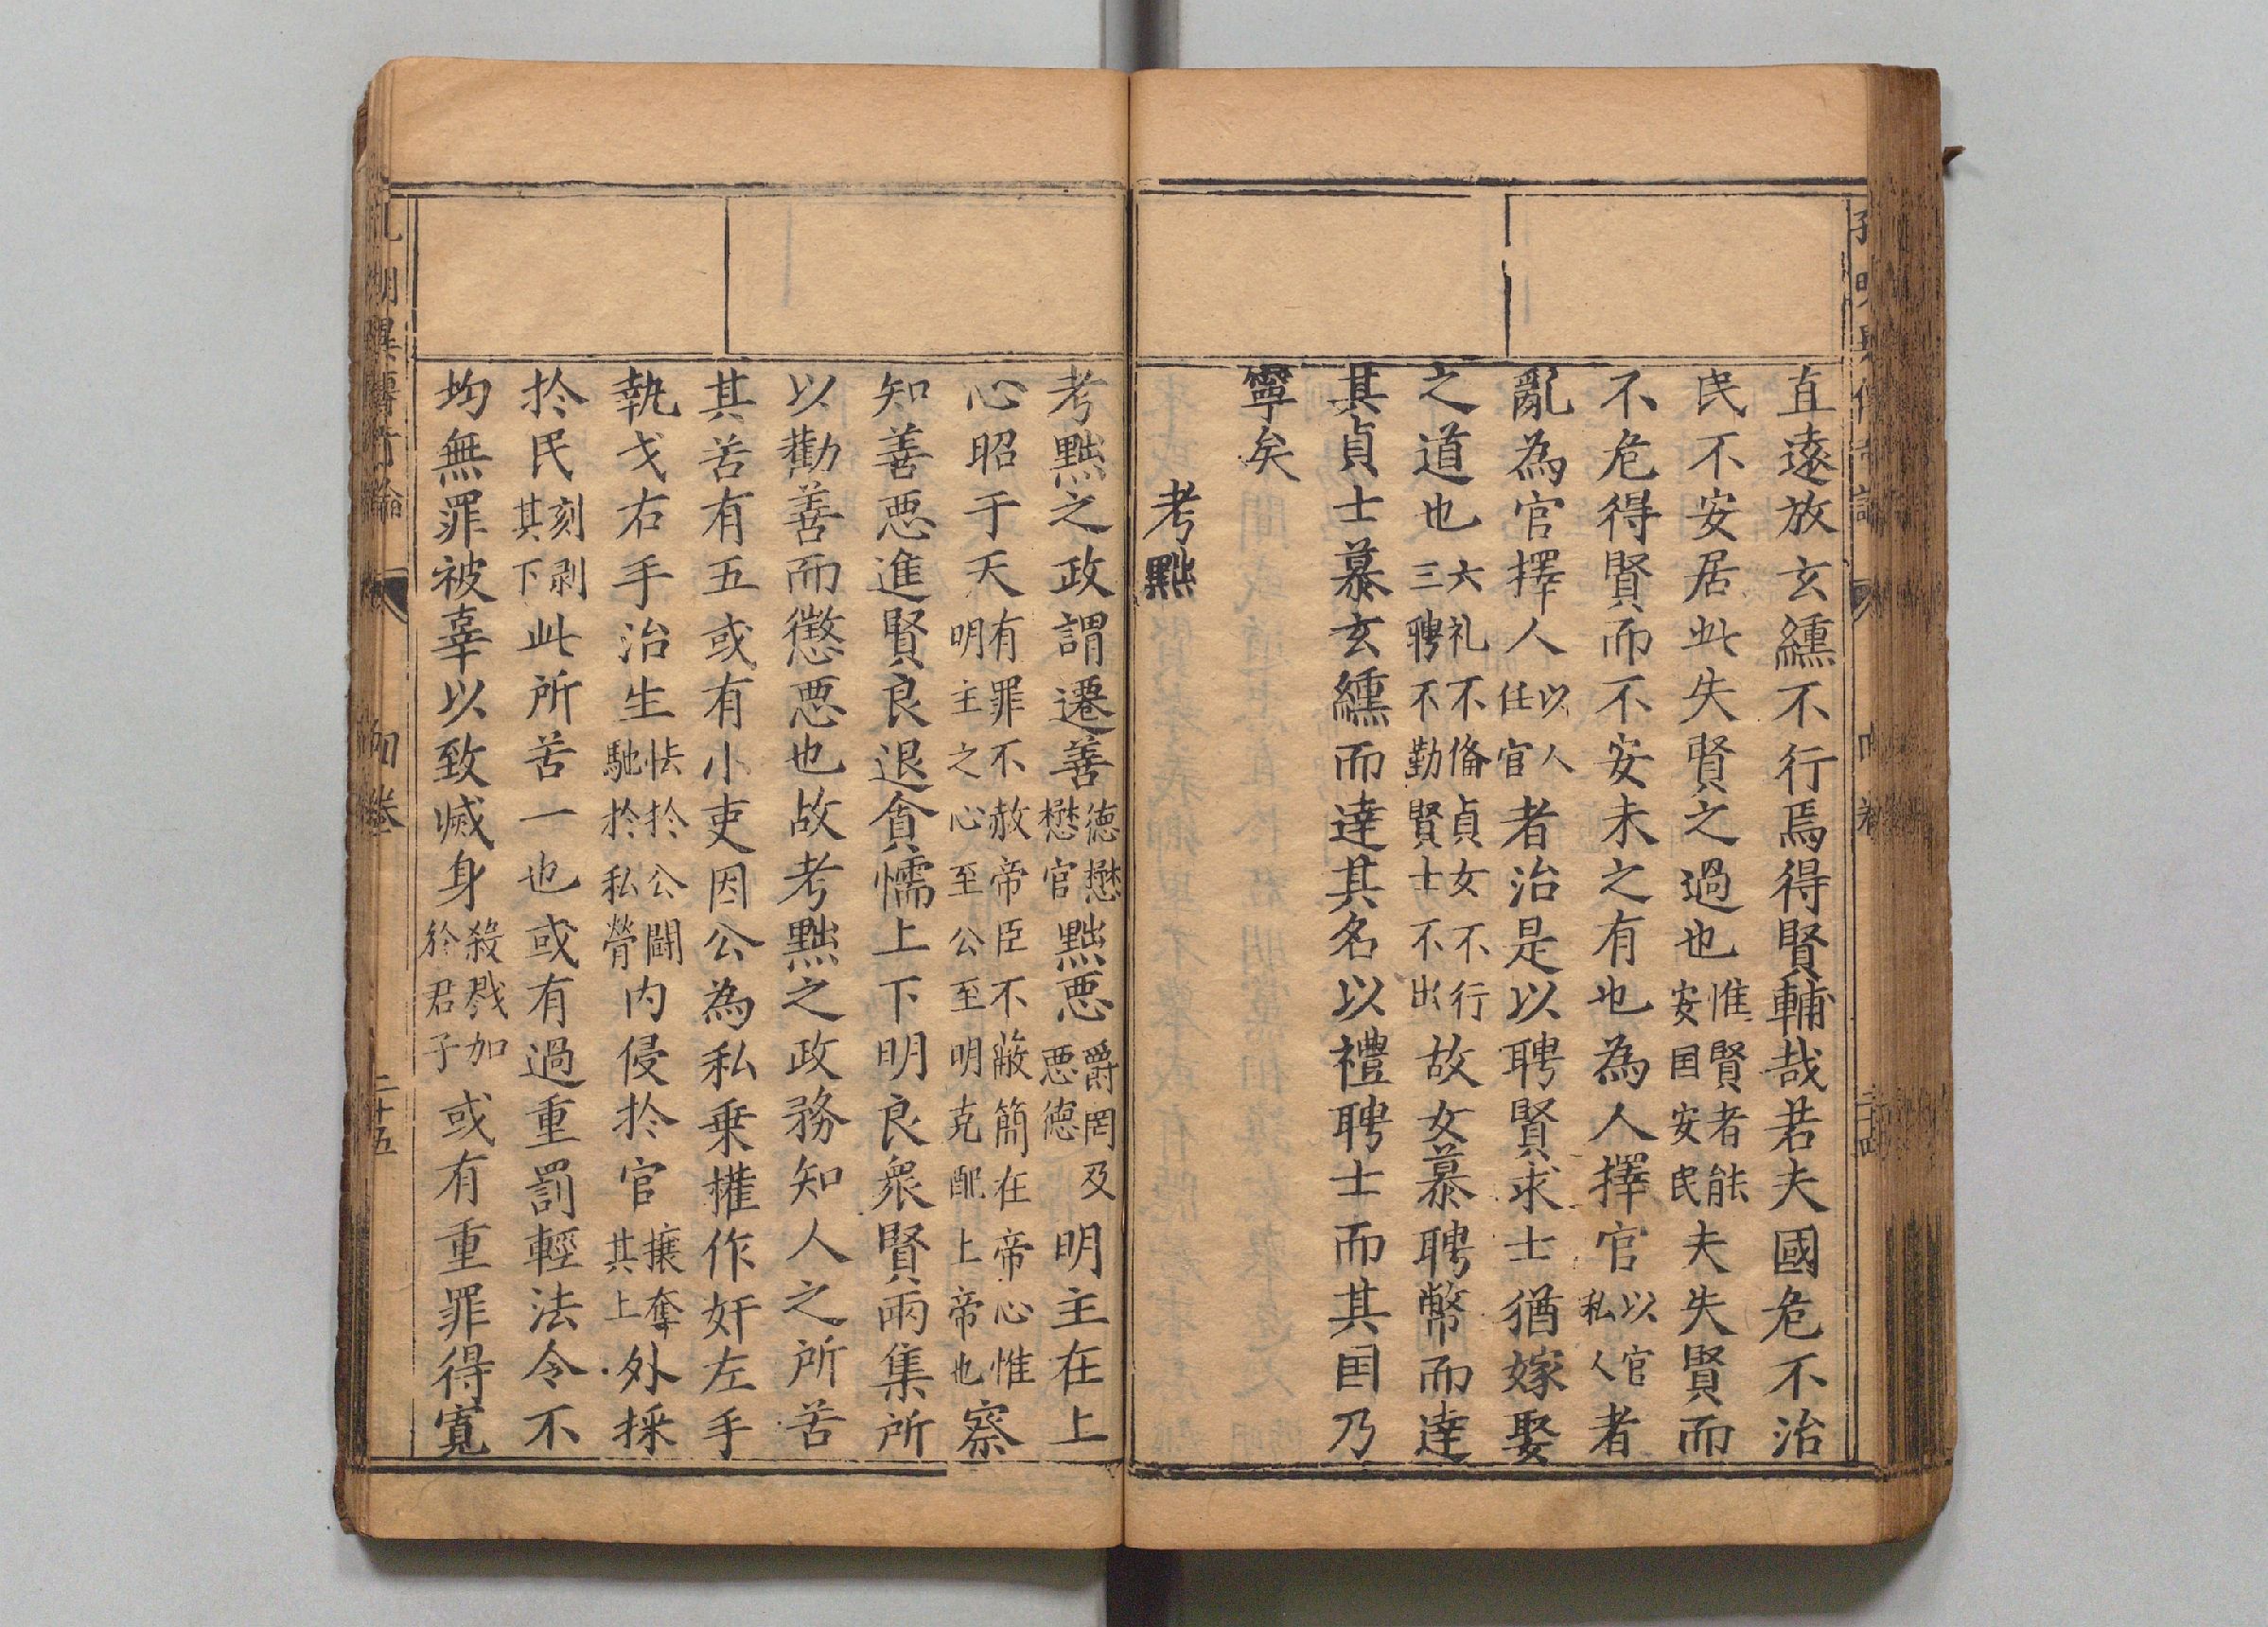 直遠放玄纁不行焉得賢輔哉若夫國危不治
民不安居此失賢之過也惟賢者能安囯安民夫失賢而
不危得賢而不安未之有也為人擇官以官私人者
亂為官擇人以人任官者治是以聘賢求士猶嫁娶
之道也六礼不俻貞女不行三聘不勤賢士不出故女慕聘幣而達
其貞士慕玄纁而達其名以禮聘士而其囯乃
寧矣
考黜
考黜之政謂遷善德懋懋官黜惡爵罔及惡德明主在上
心昭于天有罪不赦帝臣不蔽簡在帝心惟明主之心至公至明克配上帝也察
知善悪進賢良退貪懦上下明良衆賢兩集所
以勸善而懲悪也故考黜之政務知人之所苦
其苦有五或有小吏因公為私乗權作奸左手
執戈右手治生怯扵公鬪馳扵私營内侵扵官攘奪其上外採
扵民刻剥其下此所苦一也或有過重罰輕法令不
均無罪被辜以致滅身殺戮加於君子或有重罪得寛
四卷
二十五